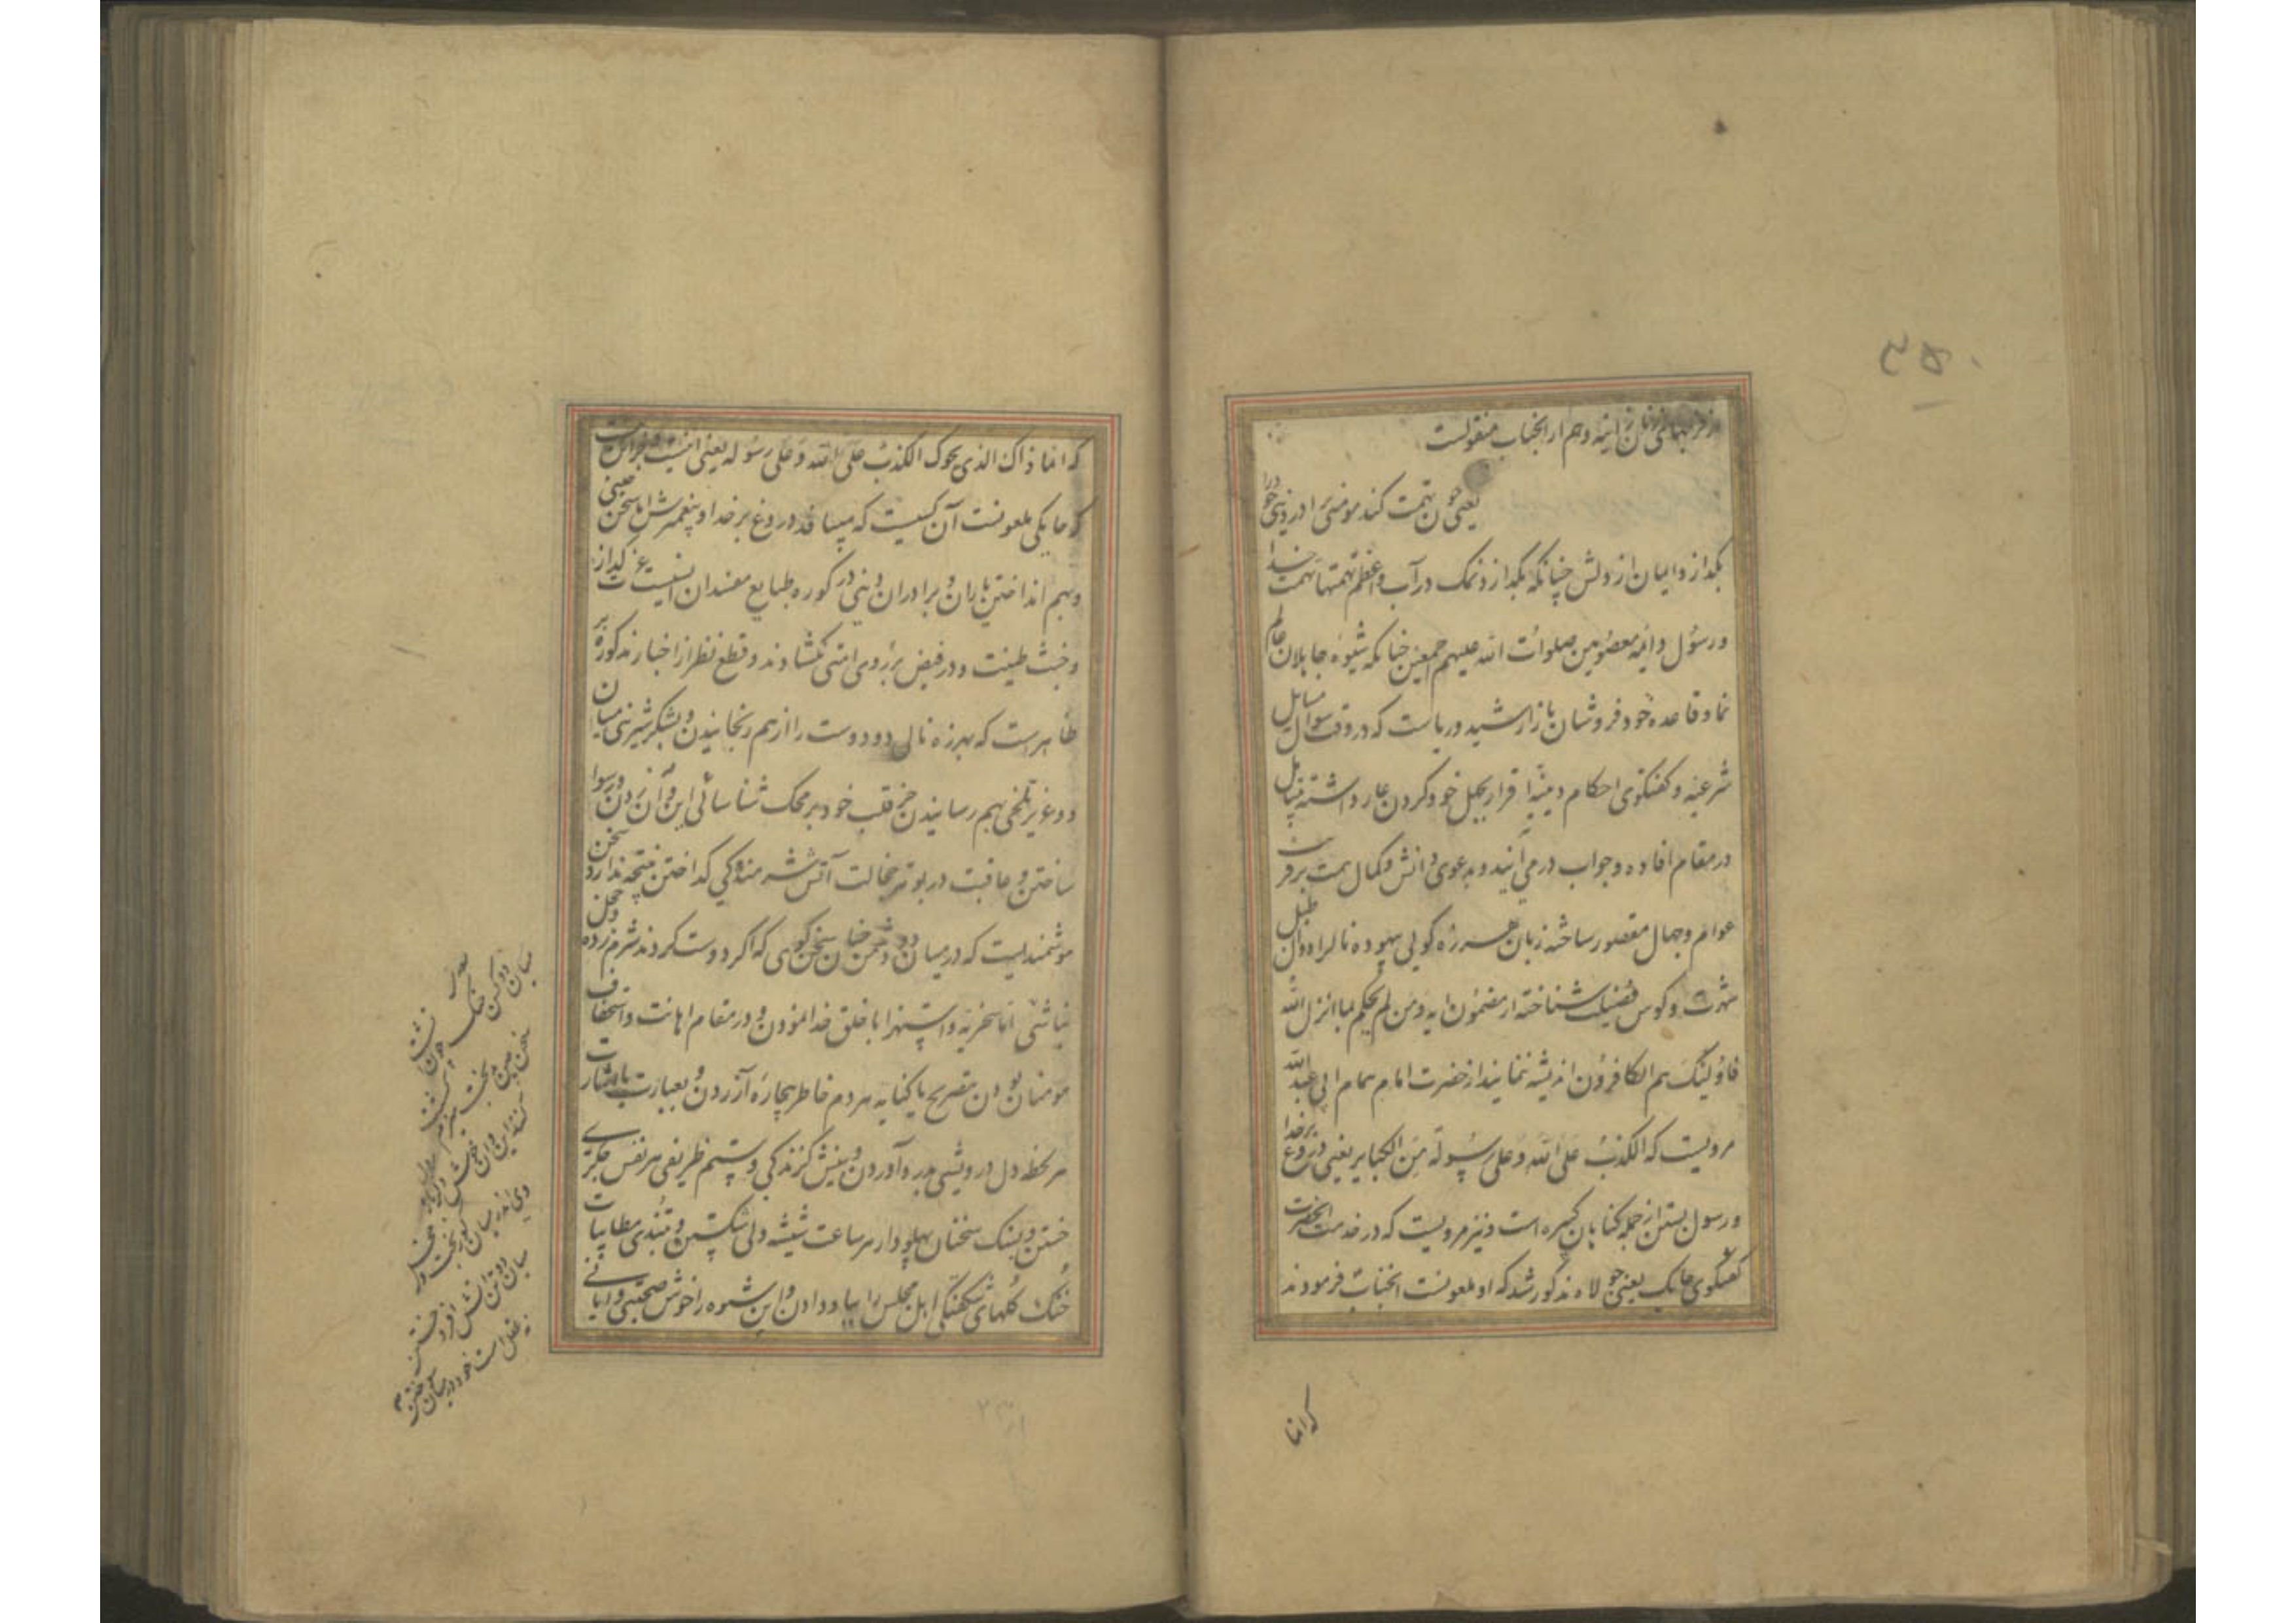 ۳۵۰
وهم از انجناب منقولست
یعنی چون تهمت کند مومنی برادر دینی خود را
بگدازد ایمان از دلش چنانکه بگدازد نمک در آب و اعظم تهمتها تهمت خدا
و رسول و ائمه معصومین صلوات الله علیهم اجمعین چنانکه شیوه جاهلان عالم
نما و قاعده خود فروشان بازار شید و ریاست که در وقت سوال مسایل
شرعیه و گفتگوی احکام دینیه اقرار بجهل خود کردن عار داشته
در مقام افاده و جواب در می آیند و بدعوی دانش و کمال همت بر
عوام و جهال مقصور ساخته زبان هرزه گوی بیهوده نال را دهل طبل
شهرت و کوس فضیلت شناخته از مضمون ایه و من لم یحکم بما انزل الله
فاولئک هم الکافرون اندیشه ننمایند از حضرت امام همام ابی عبدالله
مرویست که الکذب علی الله و علی رسوله من الکبایر یعنی دروغ بر خدا
و رسول بستن از جمله گناهان کبیره است و نیز مرویست که در خدمت انحضرت
گفتگوی حایک یعنی جولاه مذکور شد که او ملعونست انجناب فرمودند
که انما
که انما ذاک الذی یحوک الکذب علی الله و علی رسوله یعنی
که حایکی ملعونست آن کسیست که میبافد دروغ بر خدا و پیغمبرش اما سخن چینی
و بهم انداختن یاران و برادران دینی در کوره طبایع مفسدان
و خبث طینت و در فیض بر روی امتی نگشادند و قطع نظر از اخبار مذکوره
ظاهرست که بهرزه نالی دو دوست را از هم رنجانیدن و بشکر شیرینی میان
دو غیر تلخی بهم رسانیدن جز قلب خود بر محک شناسائی این و آن زدن و رسوا
ساختن و عاقبت در بوته خجالت آتش شرمندگی گداختن نتیجه ندارد سخن
هوشمندیست که در میان دو دشمن چنان سخن گوی که اگر دوست گردند شرم زده و خجل
نباشی اما سخریه و استهزا با خلق خدا نمودن و در مقام اهانت و استخفاف
مومنان بودن بتصریح یا کنایه مردم خاطر بیچاره آزردن و بعبارت یا اشارت
هر لحظه دل درویشی بدرد آوردن و بنیش گزندگی و ستم ظریفی هر نفس جگری
خستن و بسنگ سخنان پهلودار هر ساعت شیشه دلی شکستن و بتندی مطایبات
خنک گلهای شکفتگی اهل مجلس را بباد دادن و این شیوه را خوش صحبتی و
میان دو کس جنگ چون آتشست
سخن چین بدبخت هیزم کشست
کنند این و آن خوش دگر باره دل
وی اندر میان کوربخت و خجل
میان دو تن آتش افروختن
نه عقل است خود در میان سوختن